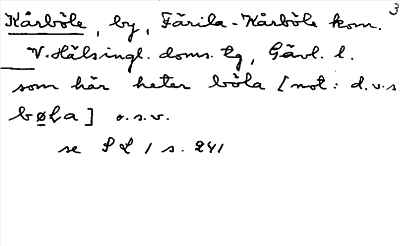 3
Kårböle, by, Färila-Kårböle kom.
V. Hälsingl. doms. tg, Gävl. l.
som här heter böla [not: d.v.s.
bøl̥a] o.s.v.
se SL 1 s. 241